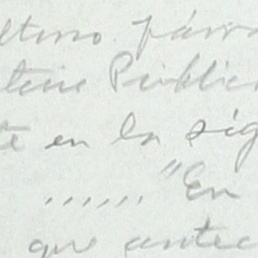 ltimo párra
terio Público
te en la sig
,,,,,, "En
que antec